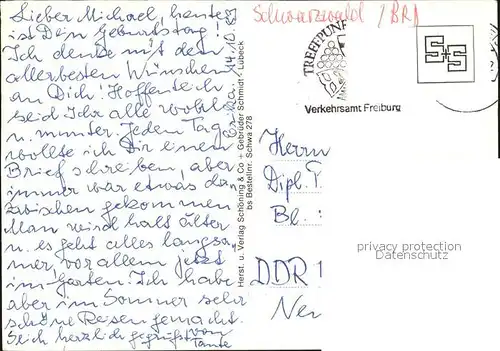 Lieber Michael, heute
ist Dein Geburtstag!
Ich denke mit den
allerbesten Wünschen
an Dich! Hoffentlich
seid Ihr alle wohl
u. munter. Jeden Tag
wollte ich Dir einen
Brief schreiben, aber
immer war etwas da-
zwischen gekommen
Man wird halt älter
u. es geht alles langsa-
mer, vor allem jetzt
im Garten. Ich habe
aber im Sommer sehr
schöne Reisen gemacht.
Sei herzlich gegrüßt von
Tante
14.10.
Herst. u. Verlag Schöning & Co + Gebrüder Schmidt - Lübeck
bs Bestellnr. Schwa 278
Schwarzwald / BRD
TREFFPUNK
Verkehrsamt Freiburg
S+S
Herrn
Dipl.
Bl.
DDR 1
Ne
privacy protection
Datenschutz